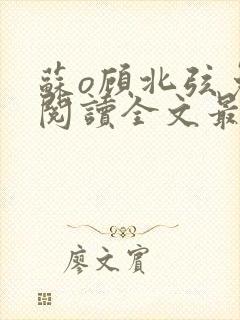 蘇o顧北弦
閱讀全文最
廖文賓